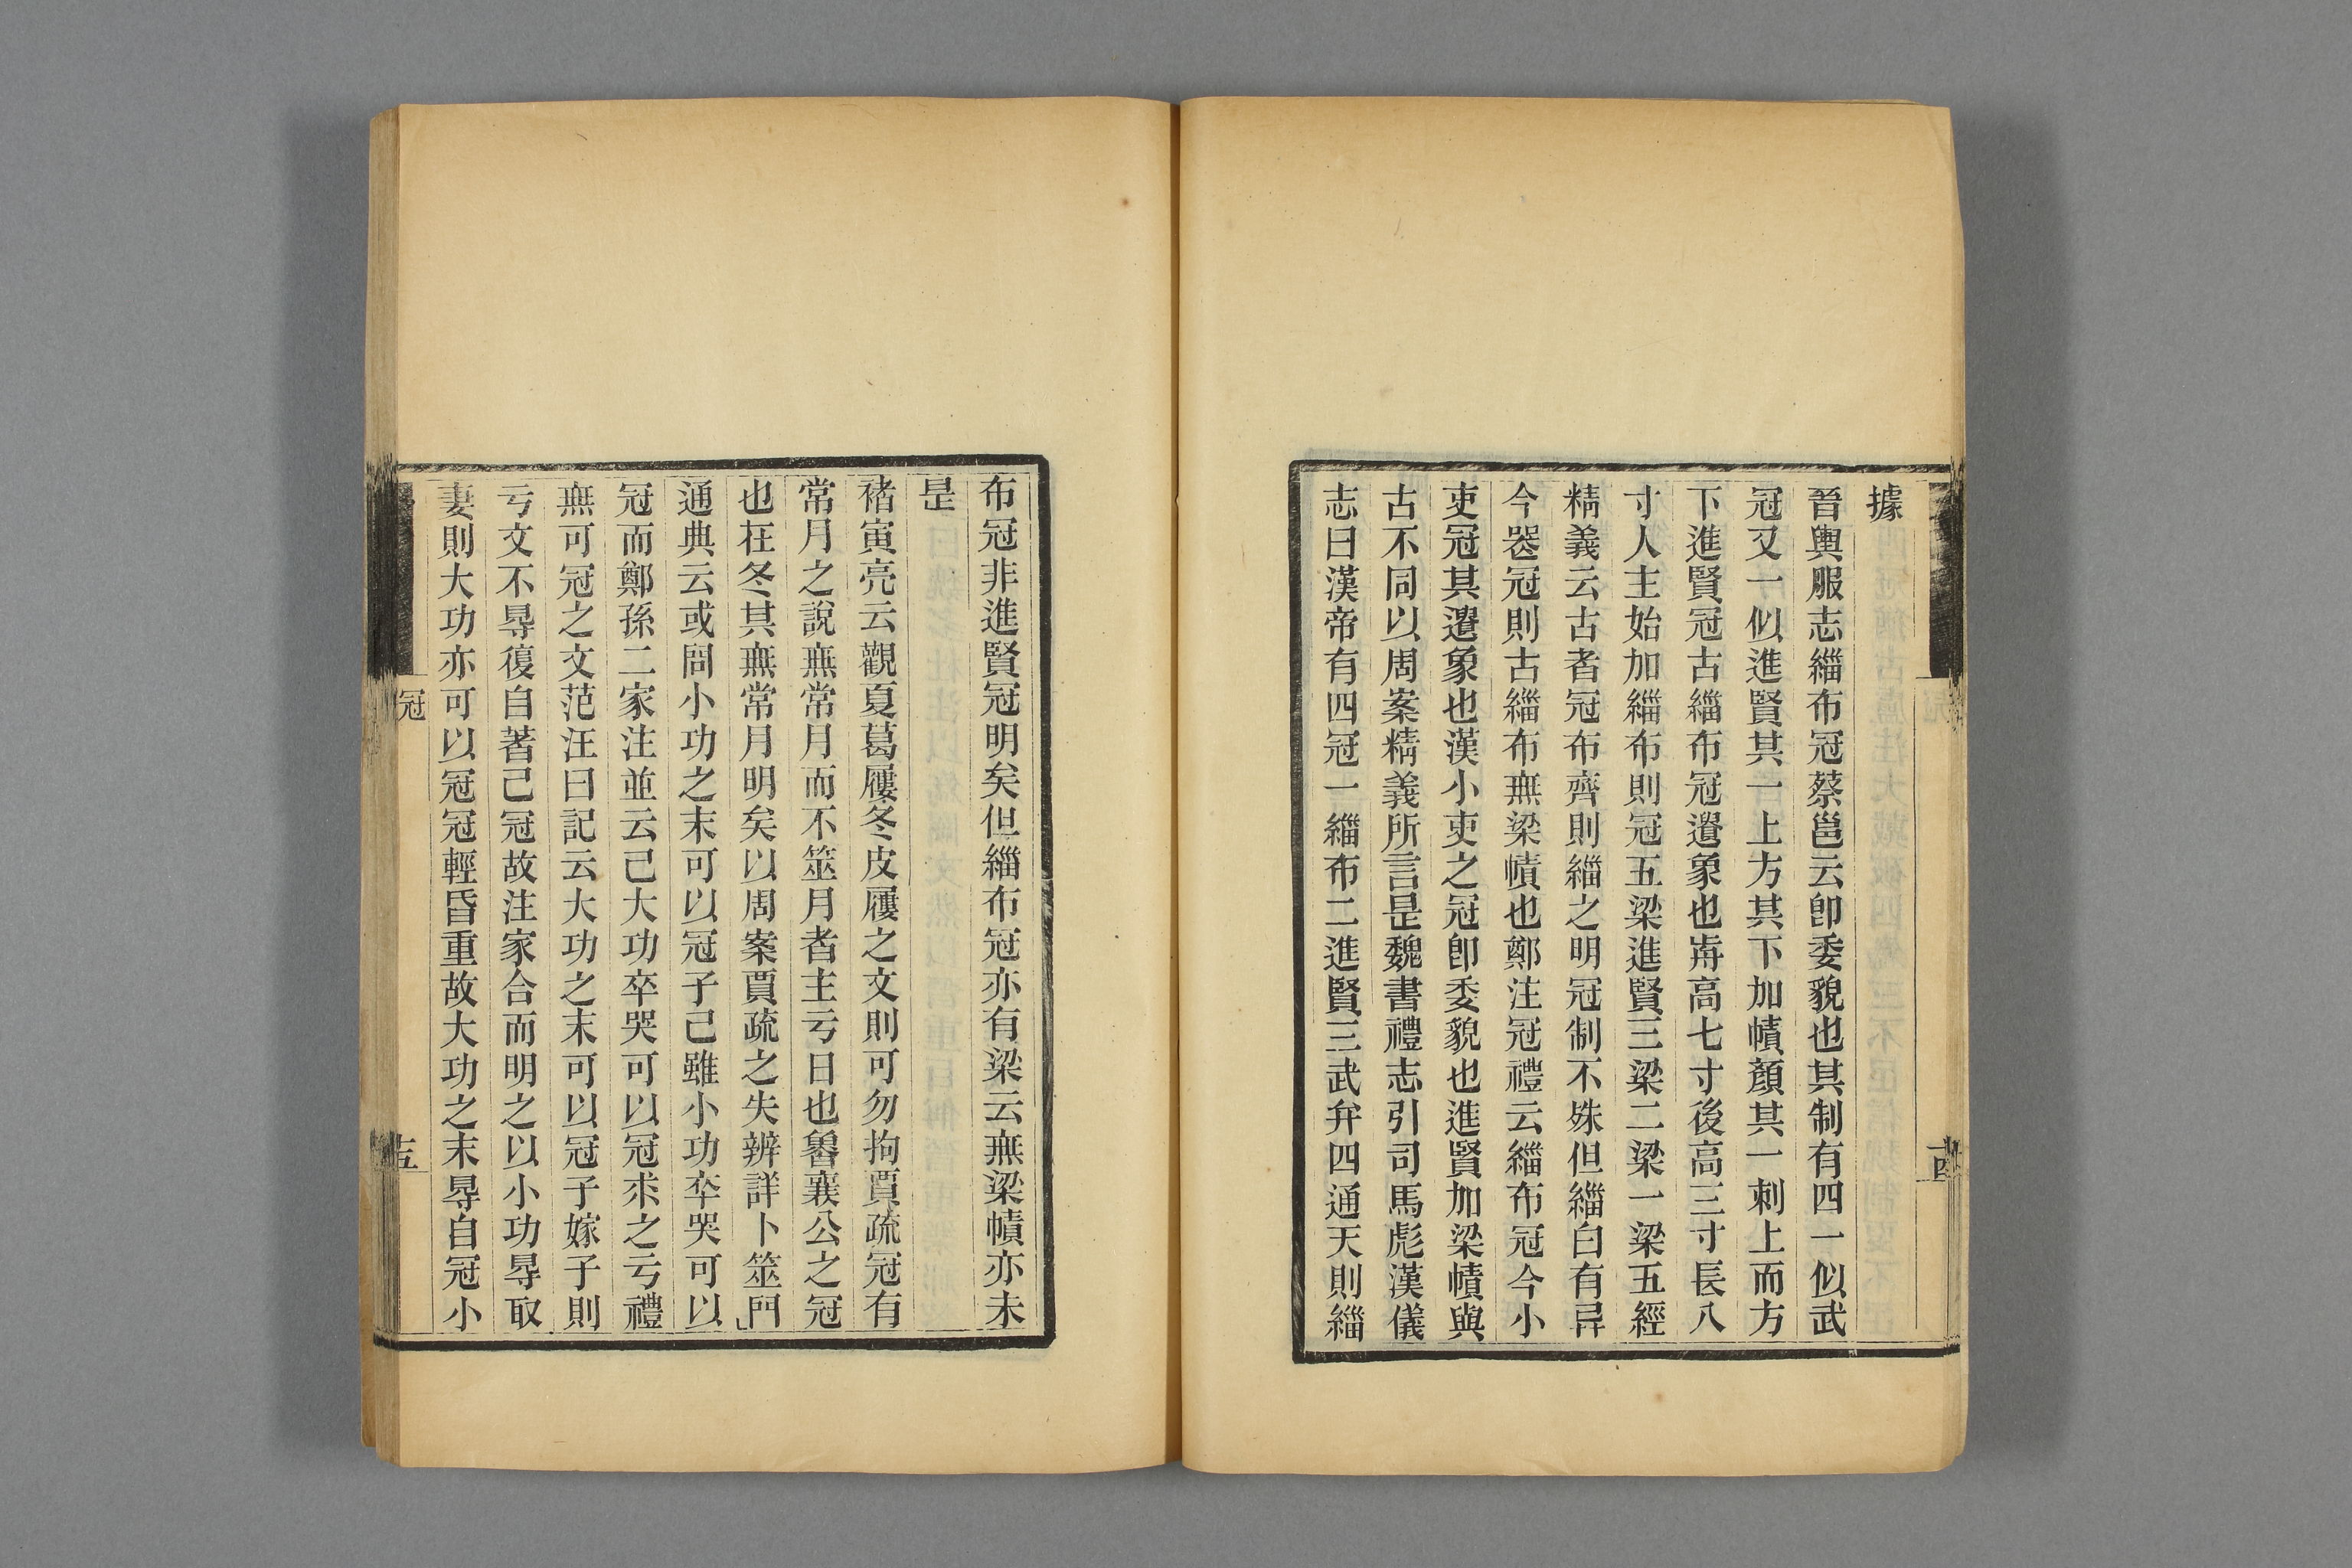 據
晉輿服志緇布冠蔡邕云卽委貌也其制有四一似武
冠又一似進賢其一上方其下加幘顏其一刺上而方
下進賢冠古緇布冠遺象也歬高七寸後高三寸長八
寸人主始加緇布則冠五梁進賢三梁二梁一梁五經
精義云古者冠布齊則緇之明冠制不殊但緇白有異
今喪冠則古緇布無梁幘也鄭注冠禮云緇布冠今小
吏冠其遺象也漢小吏之冠卽委貌也進賢加梁幘與
古不同以周案精義所言是魏書禮志引司馬彪漢儀
志曰漢帝有四冠一緇布二進賢三武弁四通天則緇
十四
布冠非進賢冠明矣但緇布冠亦有梁云無梁幘亦未
是
褚寅亮云觀夏葛屨冬皮屨之文則可勿拘賈疏冠有
常月之說無常月而不筮月者主亏日也魯襄公之冠
也在冬其無常月明矣以周案賈疏之失辨詳卜筮門
通典云或問小功之末可以冠子己雖小功卒哭可以
冠而鄭孫二家注並云己大功卒哭可以冠求之亏禮
無可冠之文范汪曰記云大功之末可以冠子嫁子則
亏文不㝵復自著己冠故注家合而明之以小功㝵取
妻則大功亦可以冠冠輕昏重故大功之末㝵自冠小
冠
十五